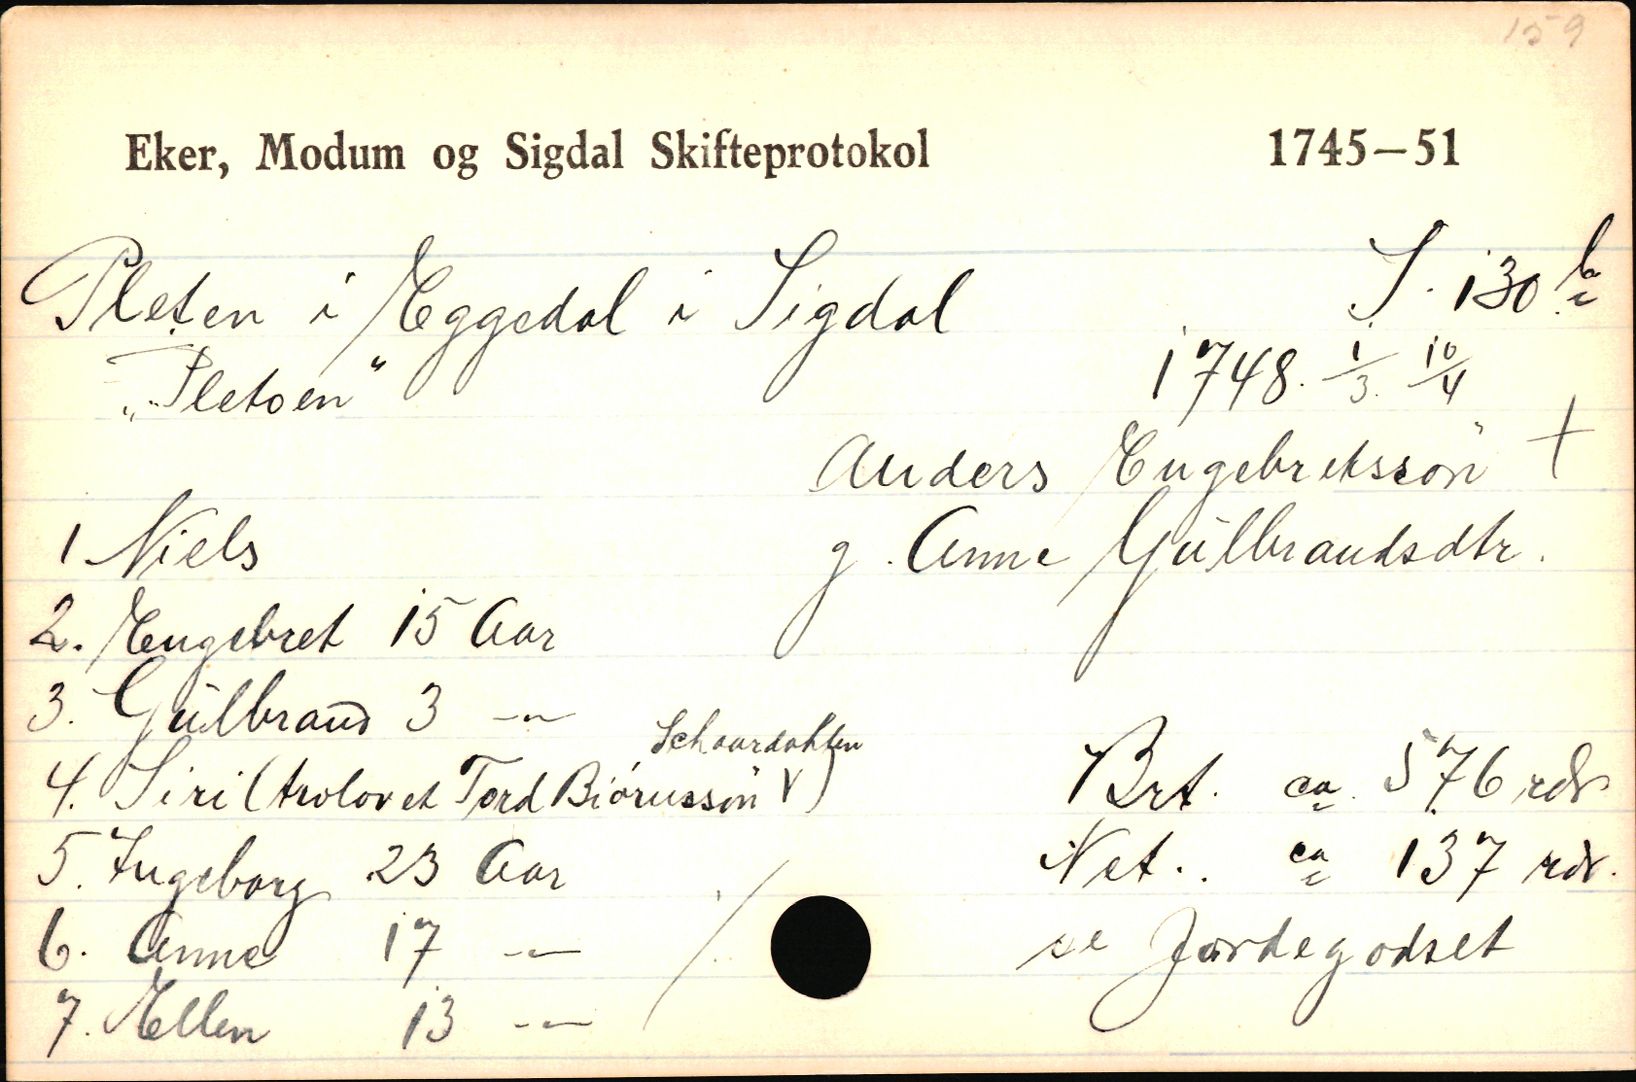 159
Eker, Modum og Sigdal Skifteprotokol 1745–51
Pleten i Eggedal i Sigdal S. 130 b
„Pletoen“ 1748. 1/3. 10/4
Anders Engebretssøn +
g. Anne Gülbrandsdtr.
1 Niels
2. Engebret 15 Aar
3. Gülbrand 3 -"-
Schaardahlen
4. Siri (trolovet Tord Biørnssøn V)
5. Ingeborg 23 Aar
6. Anne 17 -"-
7. Ellen 13 -"-
Brt. ca. 576 rdr
Net.. ca 137 rdr.
se Jordegodset